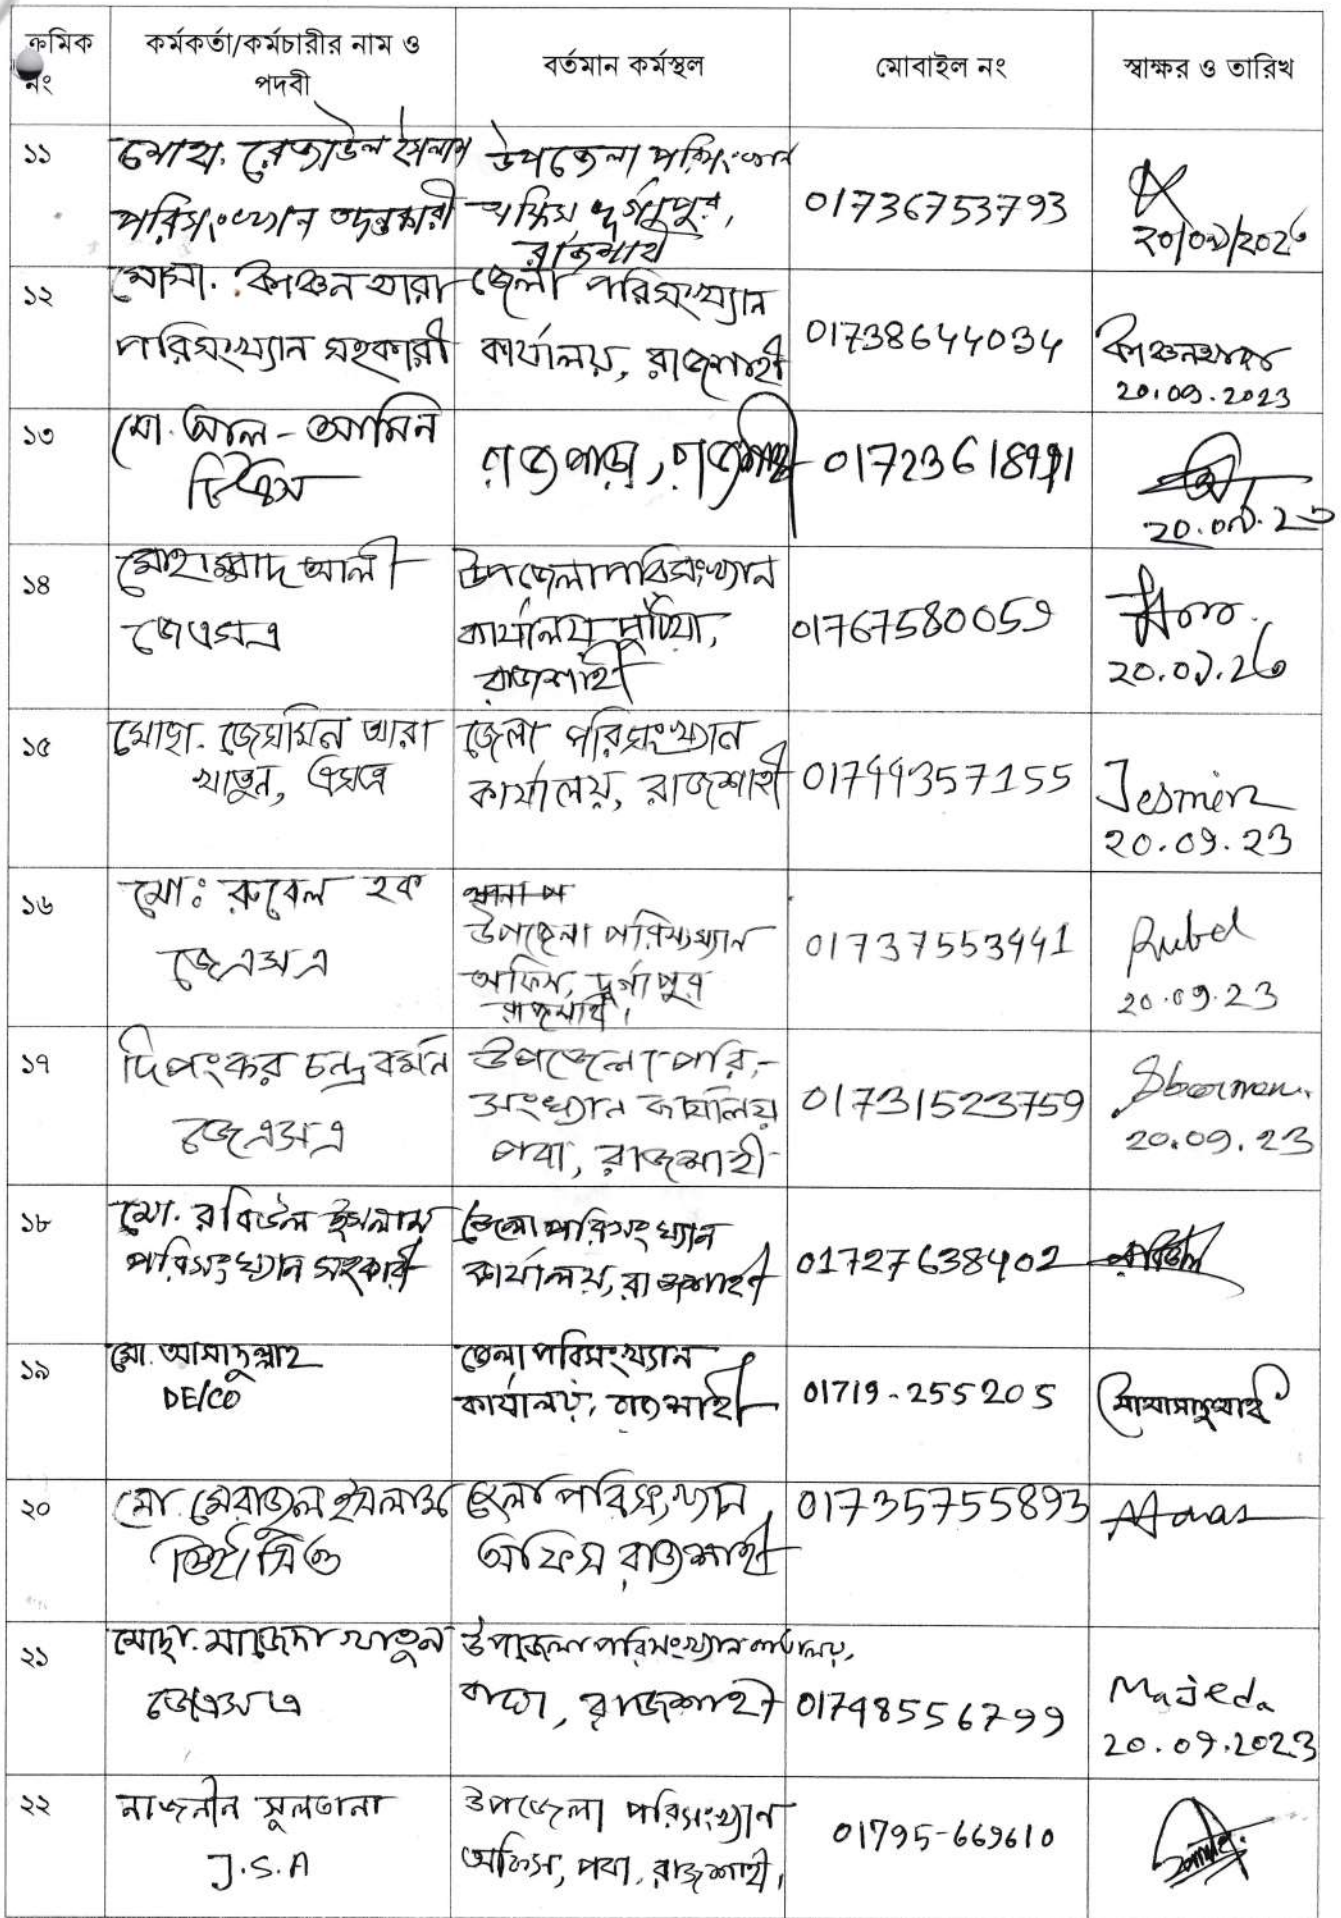 ক্রমিক নং
কর্মকর্তা/কর্মচারীর নাম ও পদবী
বর্তমান কর্মস্থল
মোবাইল নং
স্বাক্ষর ও তারিখ
১১
মোহা. রেজাউল ইসলাম
পরিসংখ্যান তদন্তকারী
উপজেলা পরিসংখ্যান
অফিস দুর্গাপুর,
রাজশাহী
01736753793
২০/০৯/২০২৩
১২
মোসা. কাঞ্চন আরা
পরিসংখ্যান সহকারী
জেলা পরিসংখ্যান
কার্যালয়, রাজশাহী
01738644034
কাঞ্চনআরা
20.09.2023
১৩
মো. আল-আমিন
রাজপাড়া, রাজশাহী
01723618991
২০.০৯.২৩
১৪
মোহাম্মাদ আলী
জেএসএ
উপজেলা পরিসংখ্যান
কার্যালয় পুঠিয়া,
রাজশাহী
01767580059
২০.০৯.২৩
১৫
মোছা. জেসমিন আরা
খাতুন, এসএ
জেলা পরিসংখ্যান
কার্যালয়, রাজশাহী
01744357155
Jesmin
20.09.23
১৬
মো: রুবেল হক
জেএসএ
উপজেলা পরিসংখ্যান
অফিস, দুর্গাপুর
রাজশাহী।
01737553441
Rubel
20.09.23
১৭
দিপংকর চন্দ্র বর্মন
জেএসএ
উপজেলা পরি-
সংখ্যান কার্যালয়
পবা, রাজশাহী
01731523759
20.09.23
১৮
মো. রবিউল ইসলাম
পরিসংখ্যান সহকারী
জেলা পরিসংখ্যান
কার্যালয়, রাজশাহী
01727638402
রবিউল
১৯
মো. আসাদুল্লাহ
DE/CO
জেলা পরিসংখ্যান
কার্যালয়, রাজশাহী
01719-255205
মোঃআসাদুল্লাহ
২০
মো. মেরাজুল ইসলাম
ডিই/সিও
জেলা পরিসংখ্যান
অফিস রাজশাহী
01735755893
২১
মোছা. মাজেদা খাতুন
জেএসএ
উপজেলা পরিসংখ্যান কার্যালয়,
বাঘা, রাজশাহী
01748556799
Majeda
20.09.2023
২২
নাজনীন সুলতানা
J.S.A
উপজেলা পরিসংখ্যান
অফিস, পবা, রাজশাহী।
01795-669610